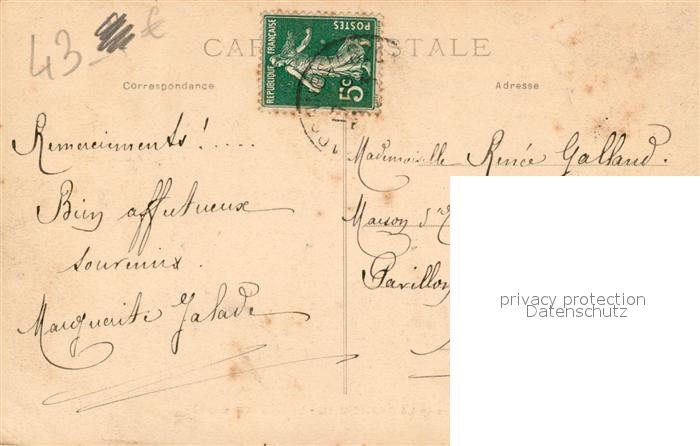 43 €
CARTE POSTALE
Correspondance
Adresse
REPUBLIQUE FRANÇAISE
POSTES
5c
Remerciements!.....
Bien affectueux
souvenirs.
Marguerite Jalade
Mademoiselle Renée Galland.
Maison d'
Pavillon
privacy protection
Datenschutz